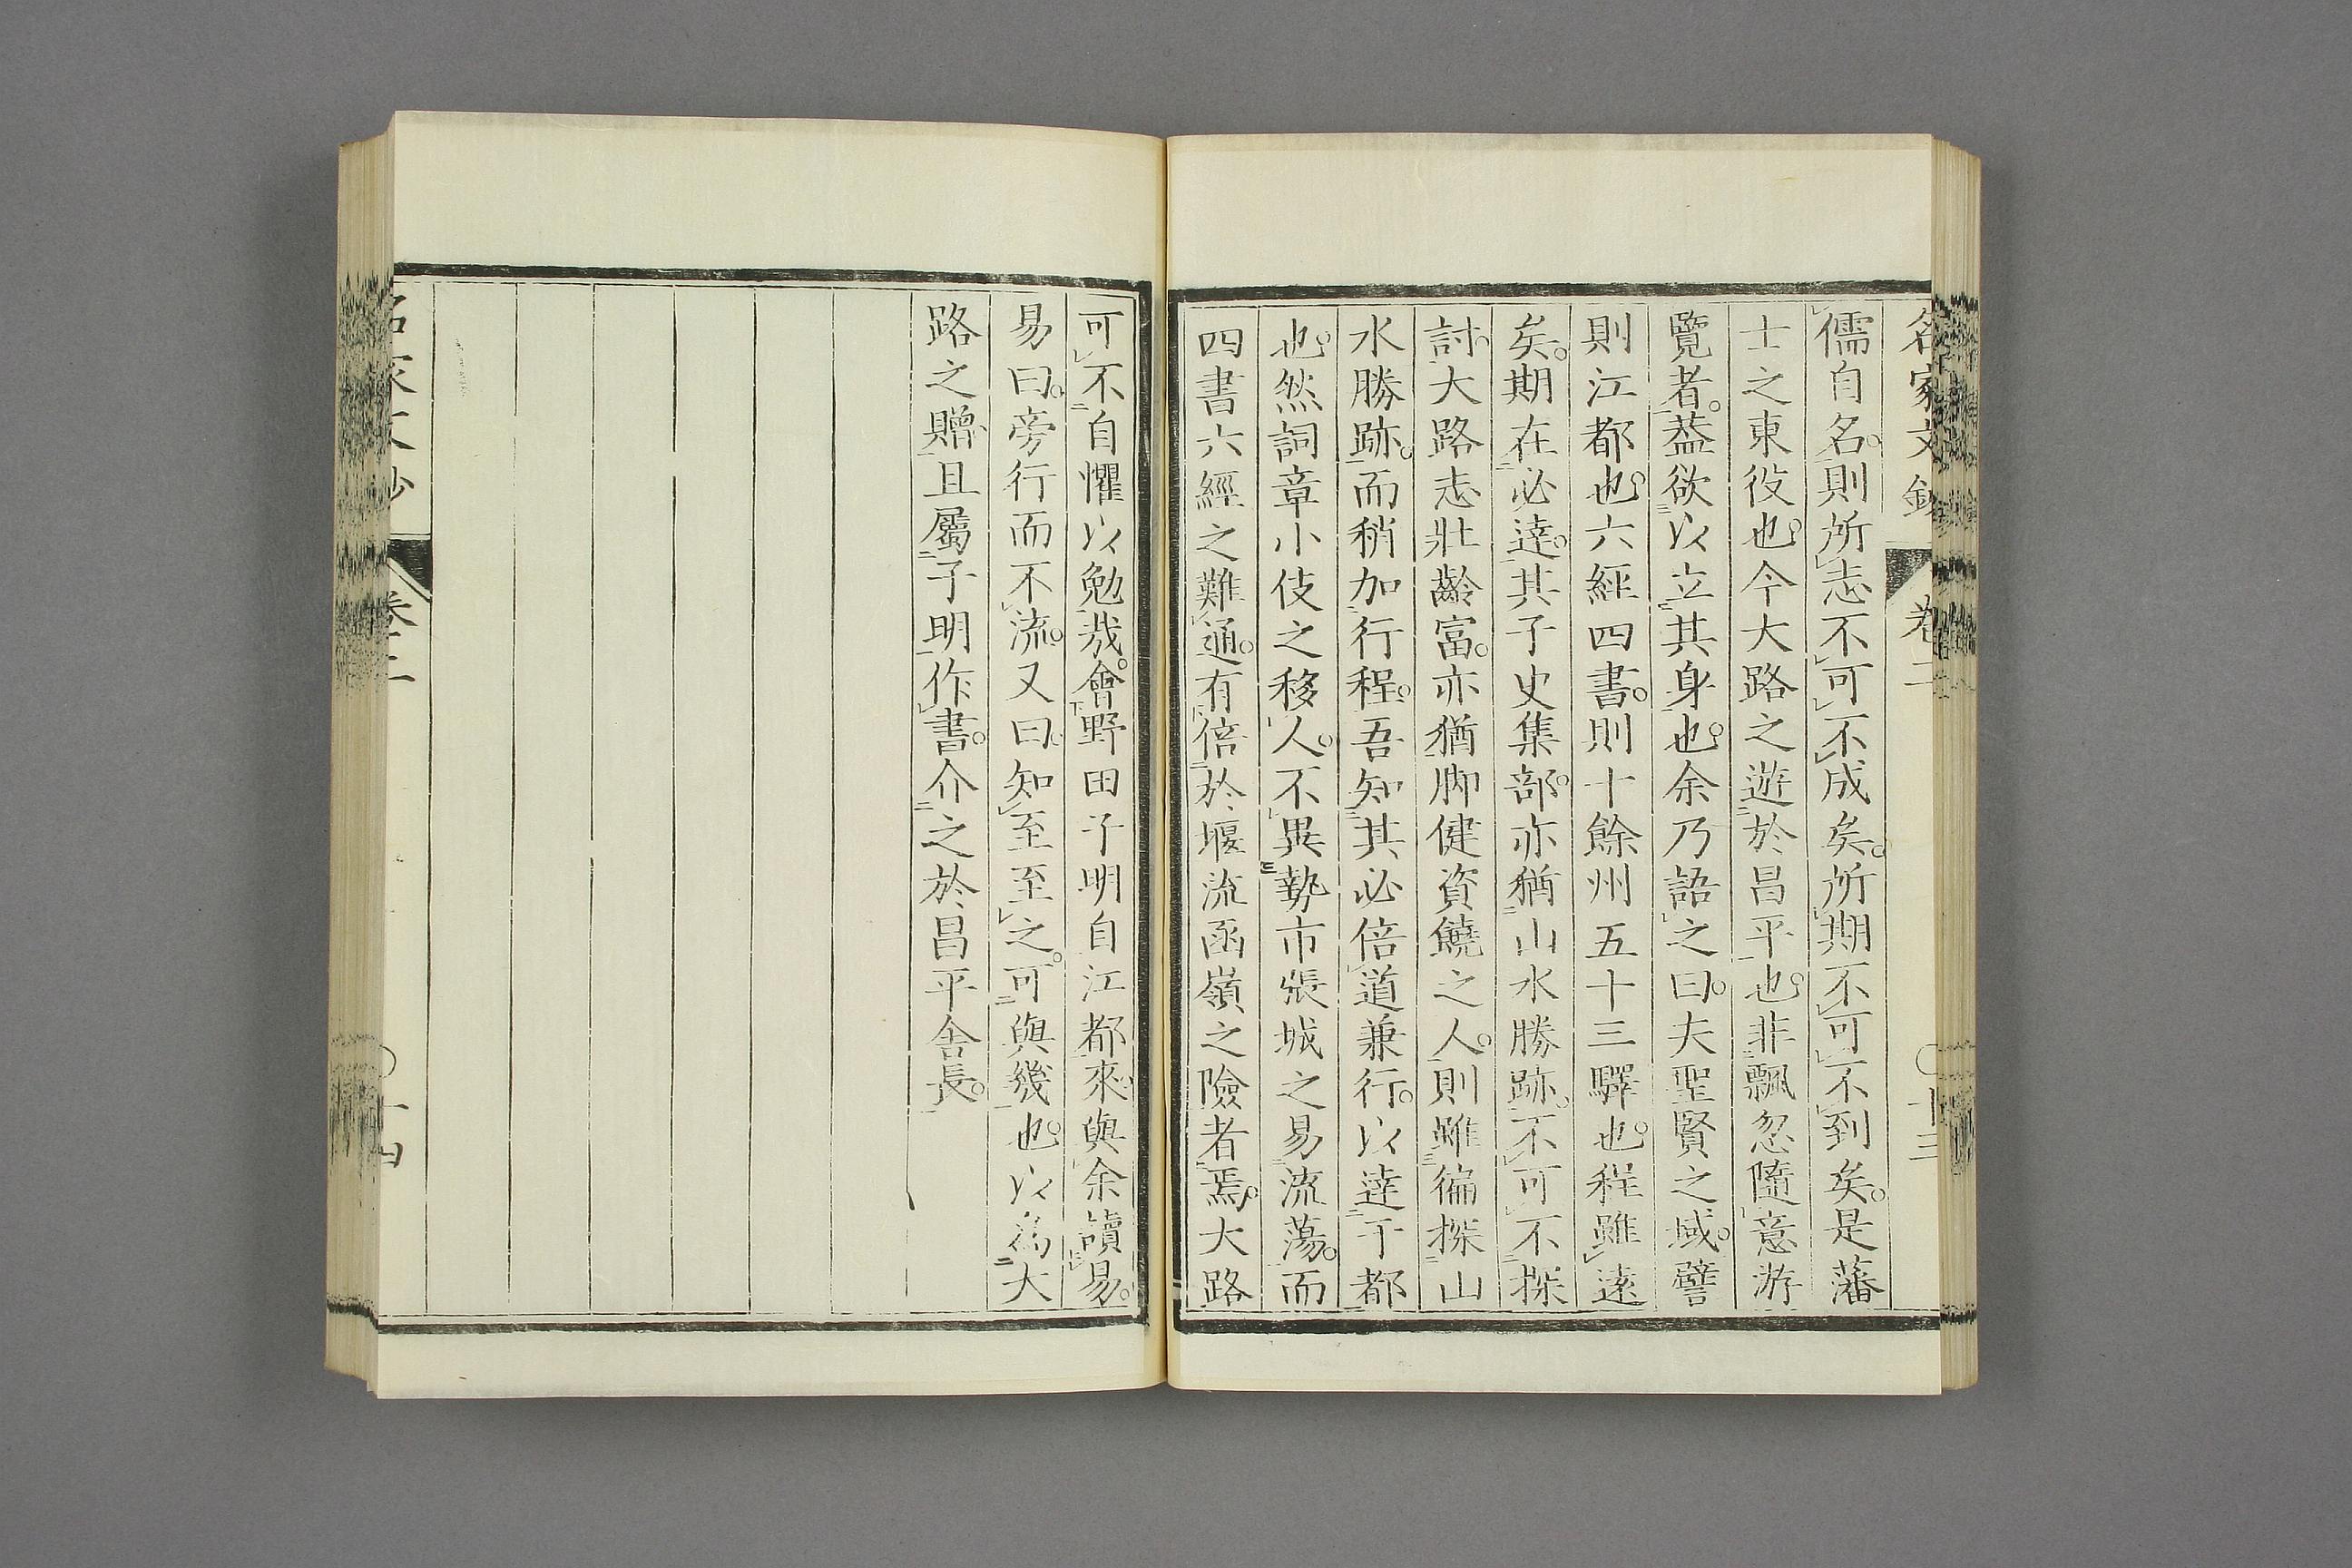 名家文鈔 卷二 〇十三
儒自名。則所志不可不成矣。所期不可不到矣。是藩
士之東役也。今大路之遊於昌平也。非飄忽隨意游
覽者。葢欲以立其身也。余乃語之曰。夫聖賢之域。譬
則江都也。六經四書。則十餘州五十三驛也。程雖遠
矣。期在必達。其子史集部。亦猶山水勝跡。不可不探
討。大路志壯齡富。亦猶脚健資饒之人。則雖徧探山
水勝跡。而稍加行程。吾知其必倍道兼行。以達于都
也。然詞章小伎之移人。不異勢市張城之易流蕩。而
四書六經之難通。有倍於堰流函嶺之險者焉。大路
可不自懼以勉哉。會野田子明自江都來。與余讀易。
易曰。旁行而不流。又曰。知至至之。可與幾也。以爲大
路之贈。且屬子明作書。介之於昌平舍長。
名家文鈔 卷二 〇十四